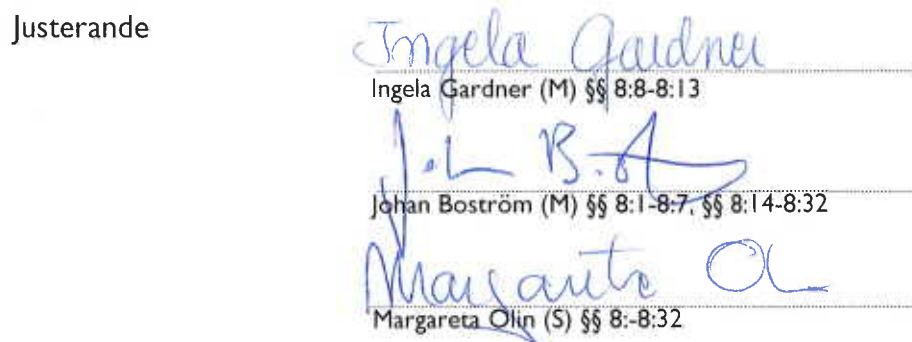 Justerande
Ingela Gardner
Ingela Gardner (M) §§ 8:8-8:13
Johan B
Johan Boström (M) §§ 8:1-8:7, §§ 8:14-8:32
Margareta Ol
Margareta Olin (S) §§ 8:-8:32